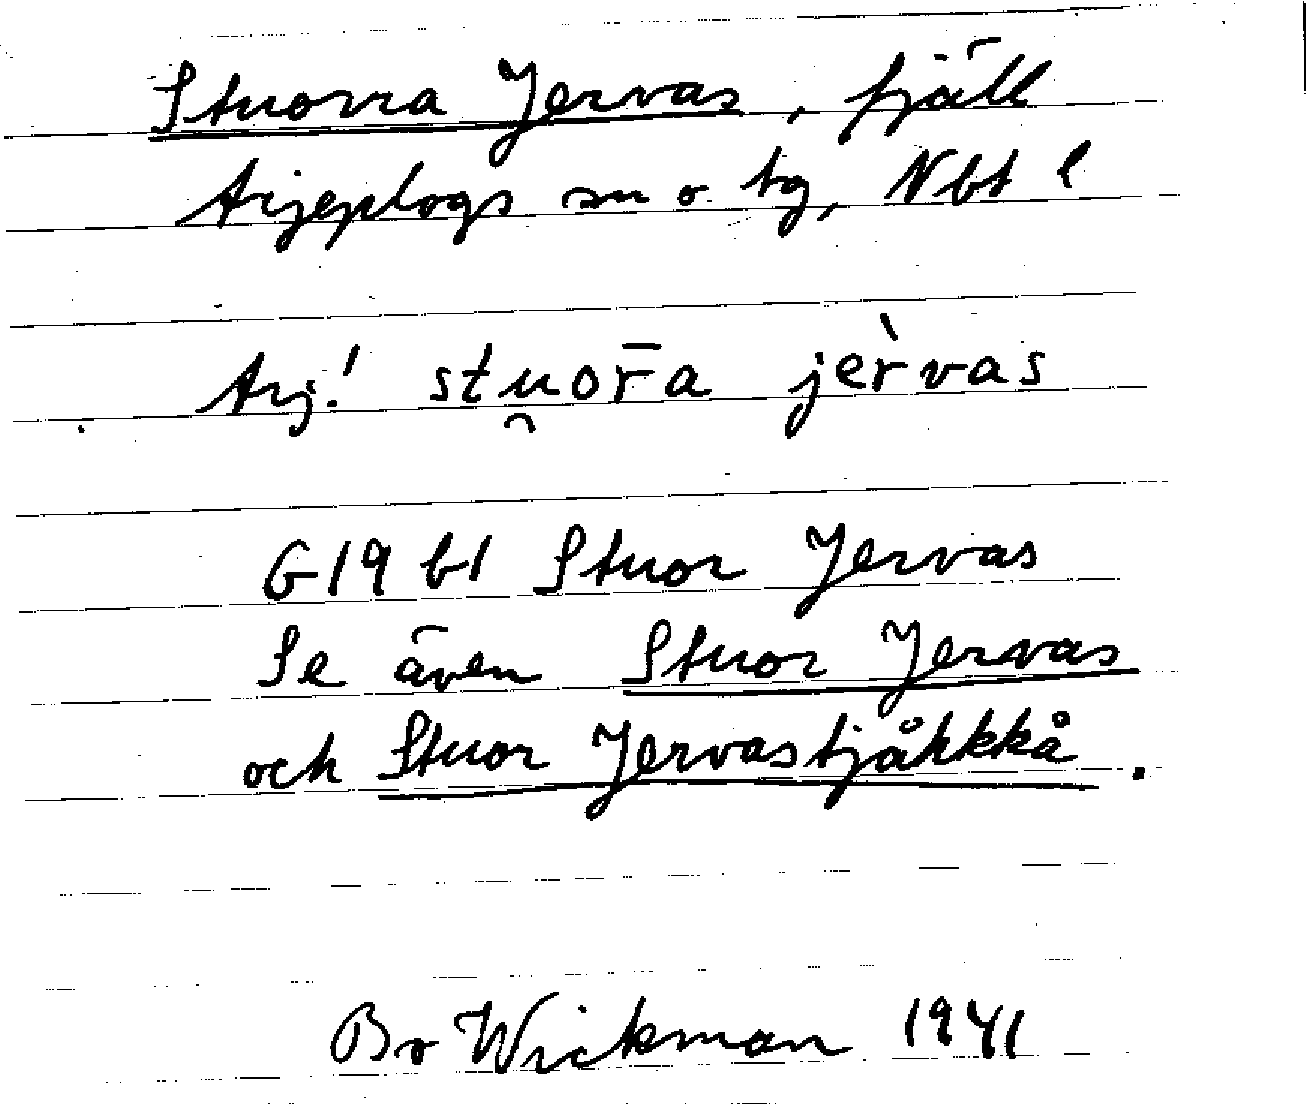 Stuorra Jervas, fjäll
Arjeplogs sn o tg, Nbt l
Arj! stu̯or̄a jer̀vas
G19 b1 Stuor Jervas
Se även Stuor Jervas
och Stuor Jervastjåkkkå.
Bo Wickman 1941